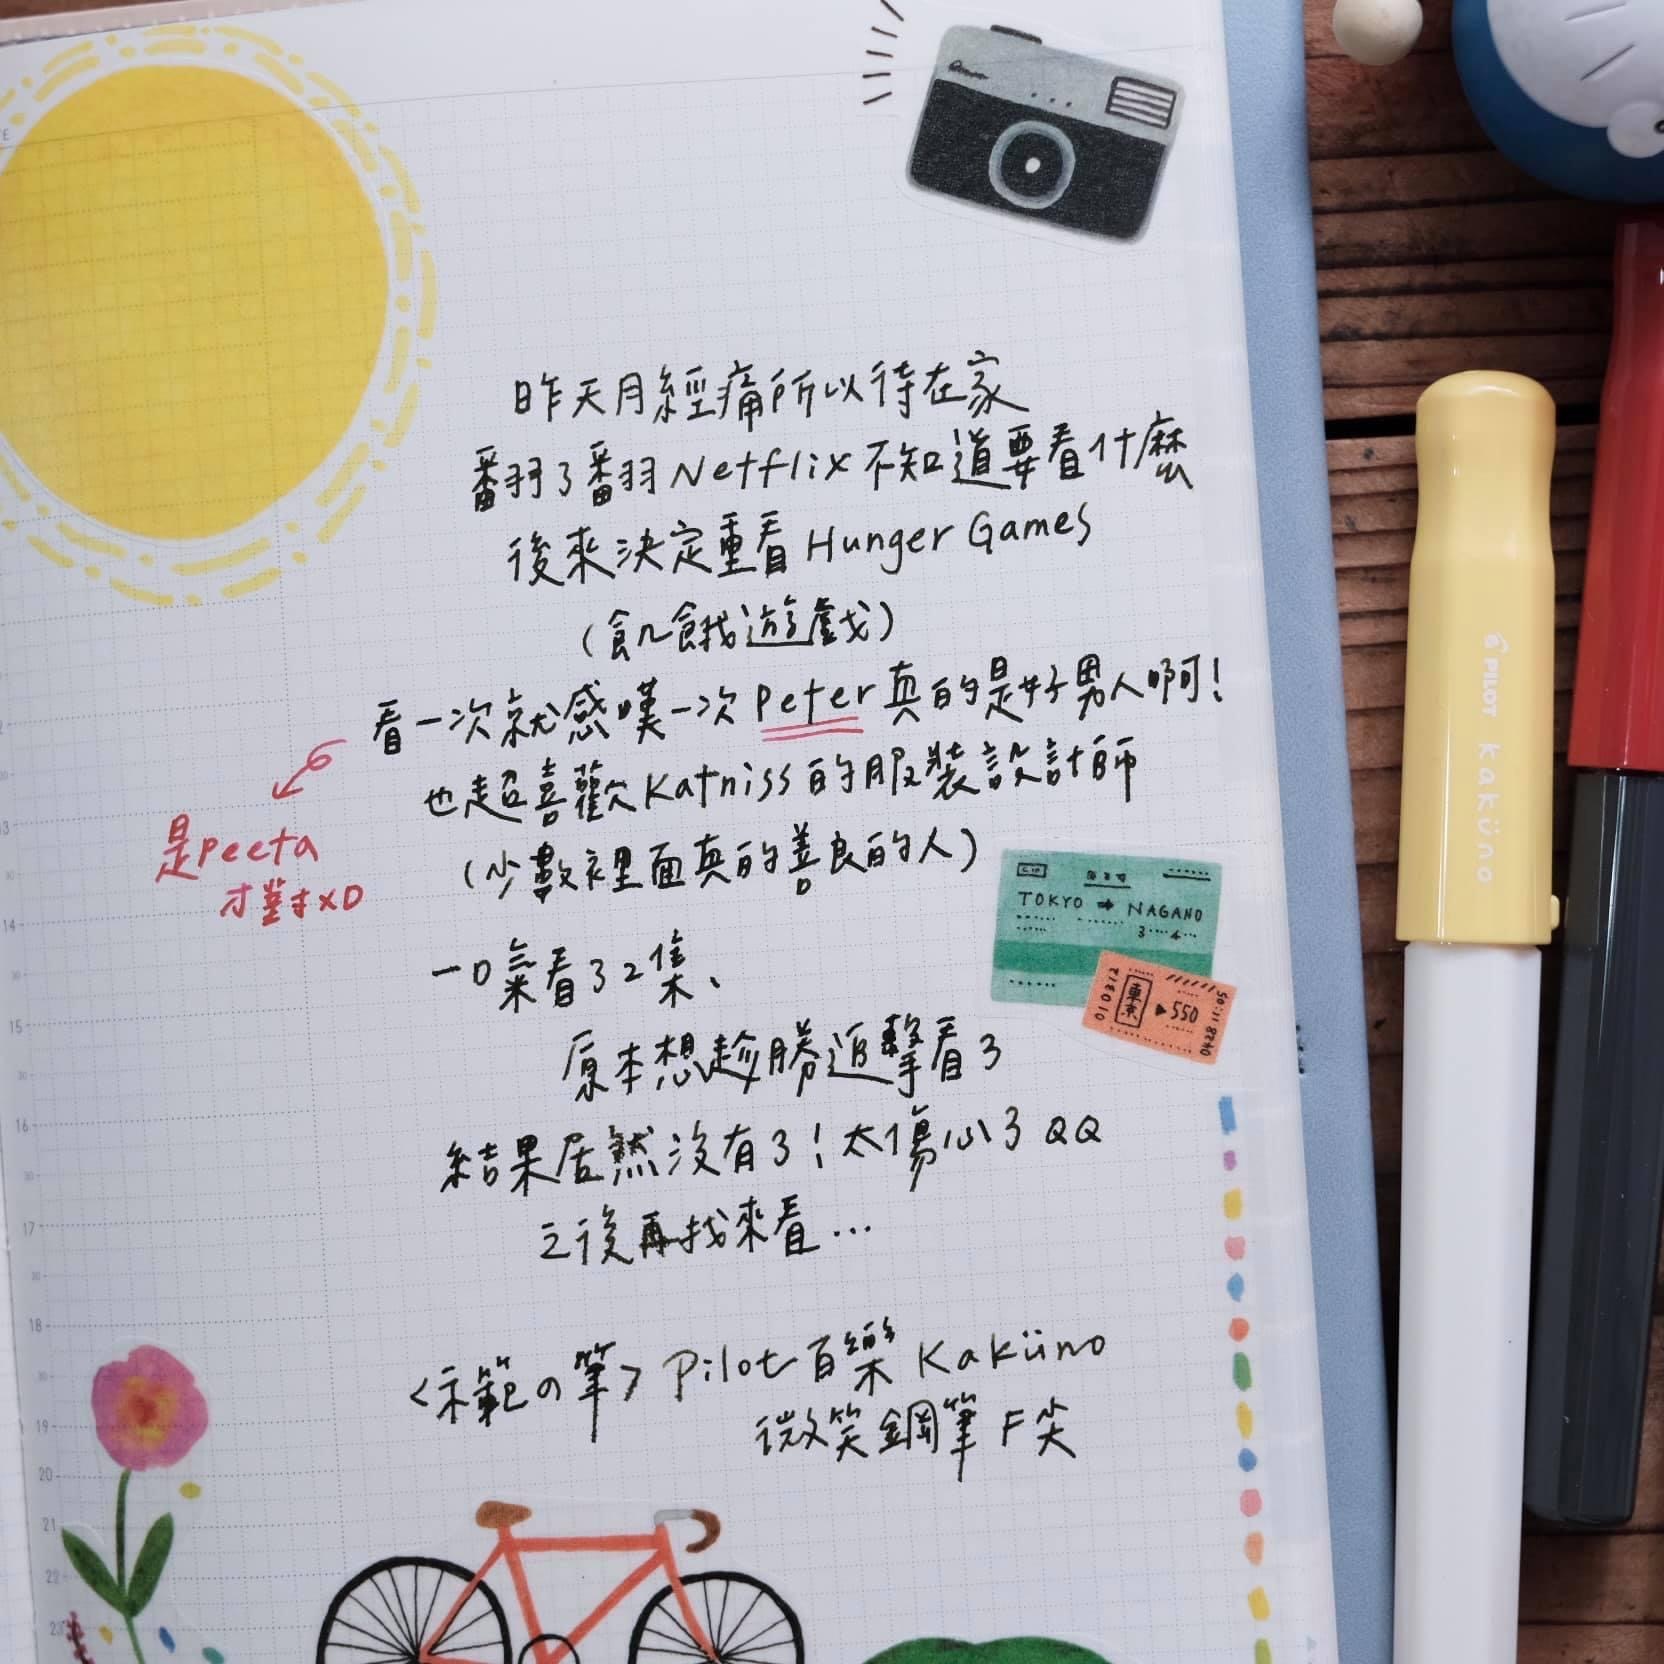 昨天月經痛所以待在家
翻了翻Netflix不知道要看什麼
後來決定重看Hunger Games
(飢餓遊戲)
看一次就感嘆一次Peter真的是好男人啊!
是Peeta
才對XD
也超喜歡Katniss的服裝設計師
(少數裡面真的善良的人)
一口氣看了2集、
原本想趁勝追擊看3
結果居然沒有了!太傷心了QQ
之後再找來看...
<示範の筆> Pilot百樂 Kaküno
微笑鋼筆 F尖
TOKYO → NAGANO
3 4
010312
東京
▶550
0428
11:05
PILOT kaküno
13
14
15
16
17
18
19
20
21
22
23